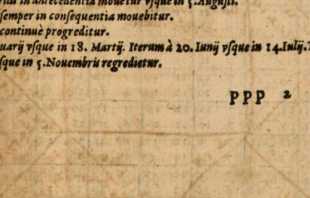 in antecedentia mouetur vſque in 5. Auguſti.
ſemper in conſequentia mouebitur.
continuè progreditur.
uarij vſque in 18. Martij. Iterum à 20. Iunij vſque in 14. Iulij.
ſque in 5. Nouembris regredietur.
PPP 2